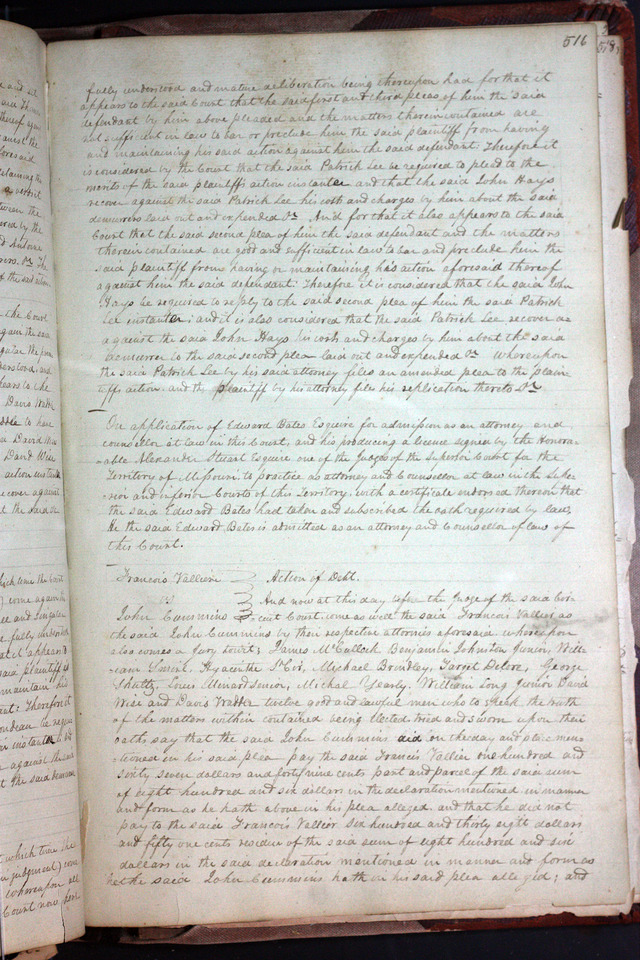 516
fully understood and mature deliberation being thereupon had for that it
appears to the said Court that the said first and third pleas of him the said
defendant by him above pleaded and the matters therein contained are
not sufficient in law to bar or preclude him the said plaintiff from having
and maintaining his said action against him the said defendant. Therefore it
is considered by the Court that the said Patrick Lee be required to plead to the
merits of the said plaintiffs action instanter and that the said John Hays
recover against the said Patrick Lee his costs and charges by him about the said
demurrers laid out and expended &c. And for that it also appears to the said
Court that the said second plea of him the said defendant and the matters
therein contained are good and sufficient in law to bar and preclude him the
said plaintiff from having or maintaining his action aforesaid thereof
against him the said defendant. Therefore it is considered that the said John
Hays be required to reply to the said second plea of him the said Patrick
Lee instanter: and it is also considered that the said Patrick Lee recover
against the said John Hays his costs and charges by him about the said
demurrer to the said second plea laid out and expended &c. Whereupon
the said Patrick Lee by his said attorney files an amended plea to the plain
tiffs action. and the plaintiff by his attorney files his replication thereto &c
On application of Edward Bates Esquire for admission as an attorney and
councellor at law in this Court, and his producing a licence signed by the Honora-
able Alexander Stuart Esquire one of the Judges of the Superior Court for the
Territory of Missouri to practice as attorney and Counsellor at law in the Supe-
rior and inferior Courts of this Territory, with a certificate endorsed thereon that
the said Edward Bates had taken and subscribed the oath required by law,
He the said Edward Bates is admitted as an attorney and Counsellor of law of
this Court.
Francois Vallier Action of Debt.
vs And now at this day before the Judge of the said Cir
John Cummins cuit Court, come as well the said Francois Vallier as
the said John Cummins by their respective attornies aforesaid whereupon
also comes a Jury towit; James McCullock Benjamin Johnston Junior, Will-
iam Hyacinthe St Cir, Michael Brindley, Target Delore, George
Shultz, Louis Menard Senior, Michal Yearly, William Long Junior David
Wise and Davis Walker twelve good and lawful men who to speak the truth
of the matters within contained being Elected tried and sworn upon their
oaths say that the said John Cummins did on the day and place men
tioned in his said plea pay the said Francis Vallier one hundred and
sixty seven dollars and forty nine cents part and parcel of the said sum
of eight hundred and six dollars in the declaration mentioned in manner
and form as he hath above in his plea alleged, and that he did not
pay to the said Francois Vallier six hundred and thirty eight dollars
and fifty one cents residue of the said sum of eight hundred and six
dollars in the said declaration mentioned in manner and form as
he the said John Cummins hath in his said plea alleged; and